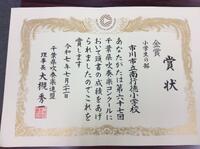 賞状
金賞
小学生の部
市川市立南行徳小学校
あなたがたは第六十七回
千葉県吹奏楽コンクールに
おいて頭書の成績をあげ
られましたのでこれを
賞します
令和七年七月二十一日
千葉県吹奏楽連盟
理事長 大槻秀一